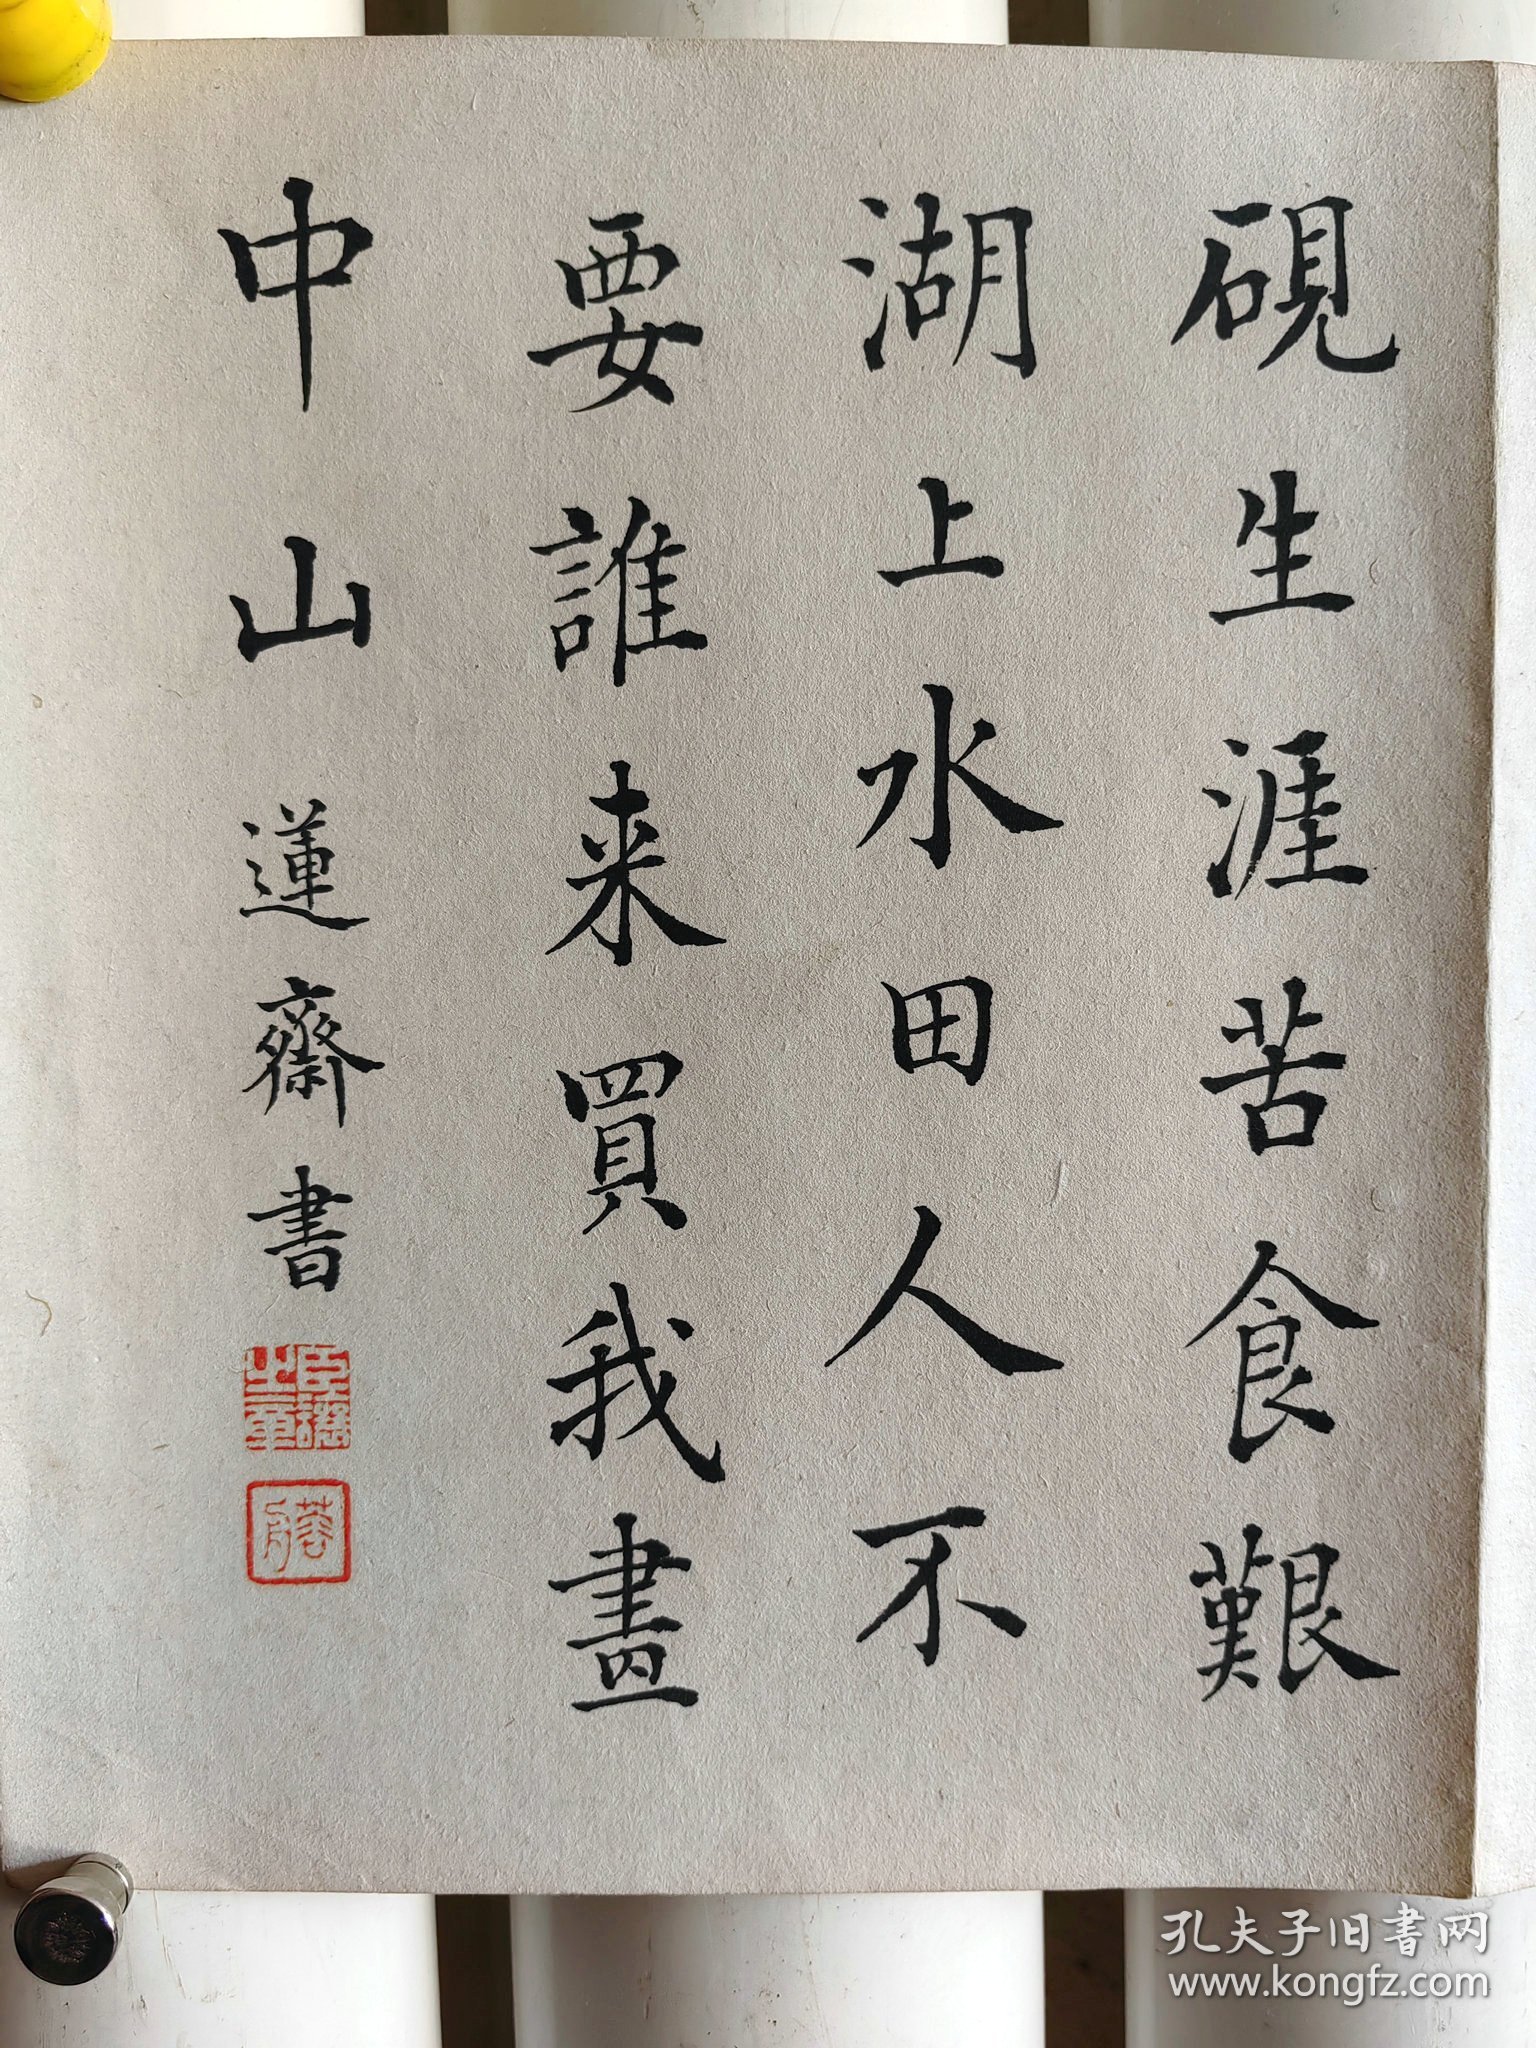 硯生涯苦食艱
湖上水田人不
要誰来買我畫
中山 蓮齋書
臣讓之章
孔夫子旧书网
www.kongfz.com